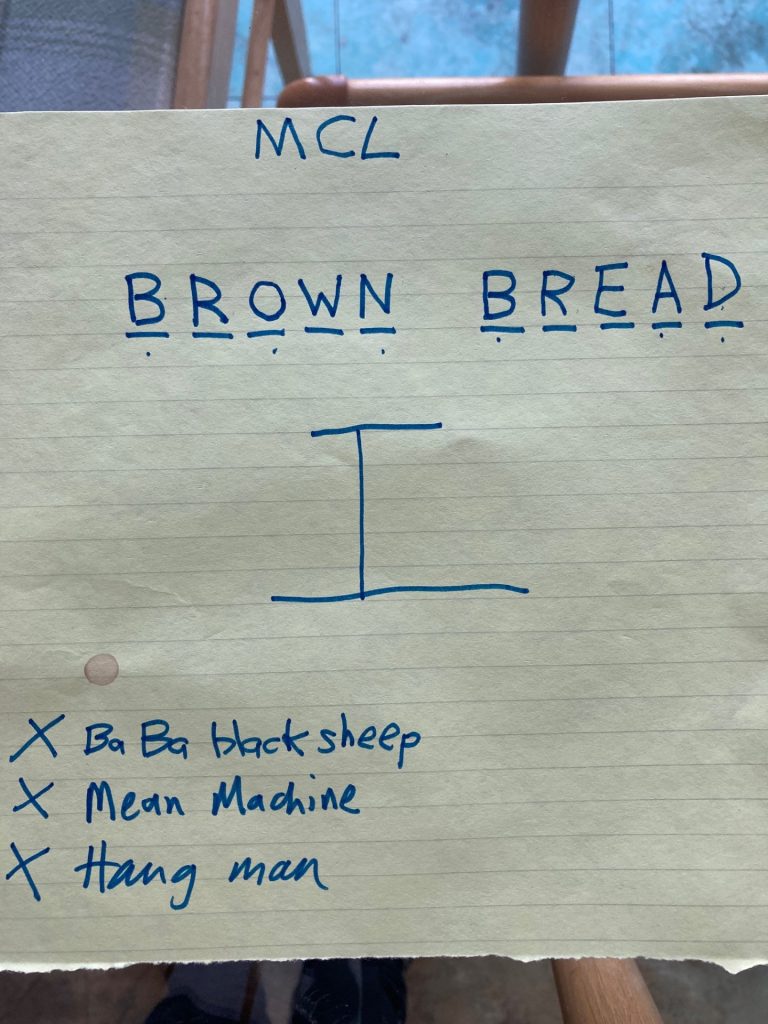 MCL
BROWN BREAD
X Ba Ba black sheep
X Mean Machine
X Hang man